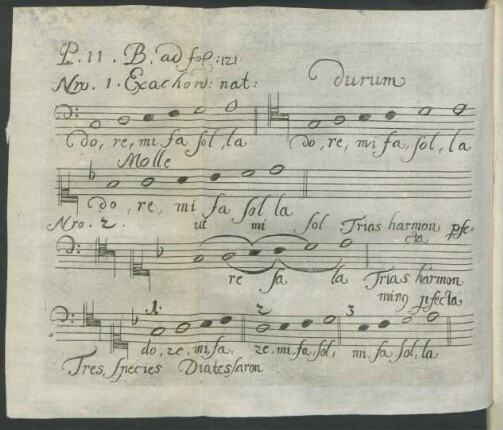 P. 11. B. ad fol: 121
Nro. 1. Exachord: nat: durum
do, re, mi fa sol, la do, re, mi fa, sol, la
Molle
do, re, mi fa sol la
Nro. 2. ut mi sol Trias harmon pfe-
cta
re fa la Trias harmon
ming pfecta
1. 2 3
do, re, mi, fa. re, mi, fa, sol, mi, fa, sol, la
Tres Species Diatessaron